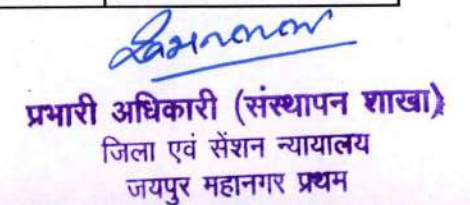 प्रभारी अधिकारी (संस्थापन शाखा)
जिला एवं सेंशन न्यायालय
जयपुर महानगर प्रथम